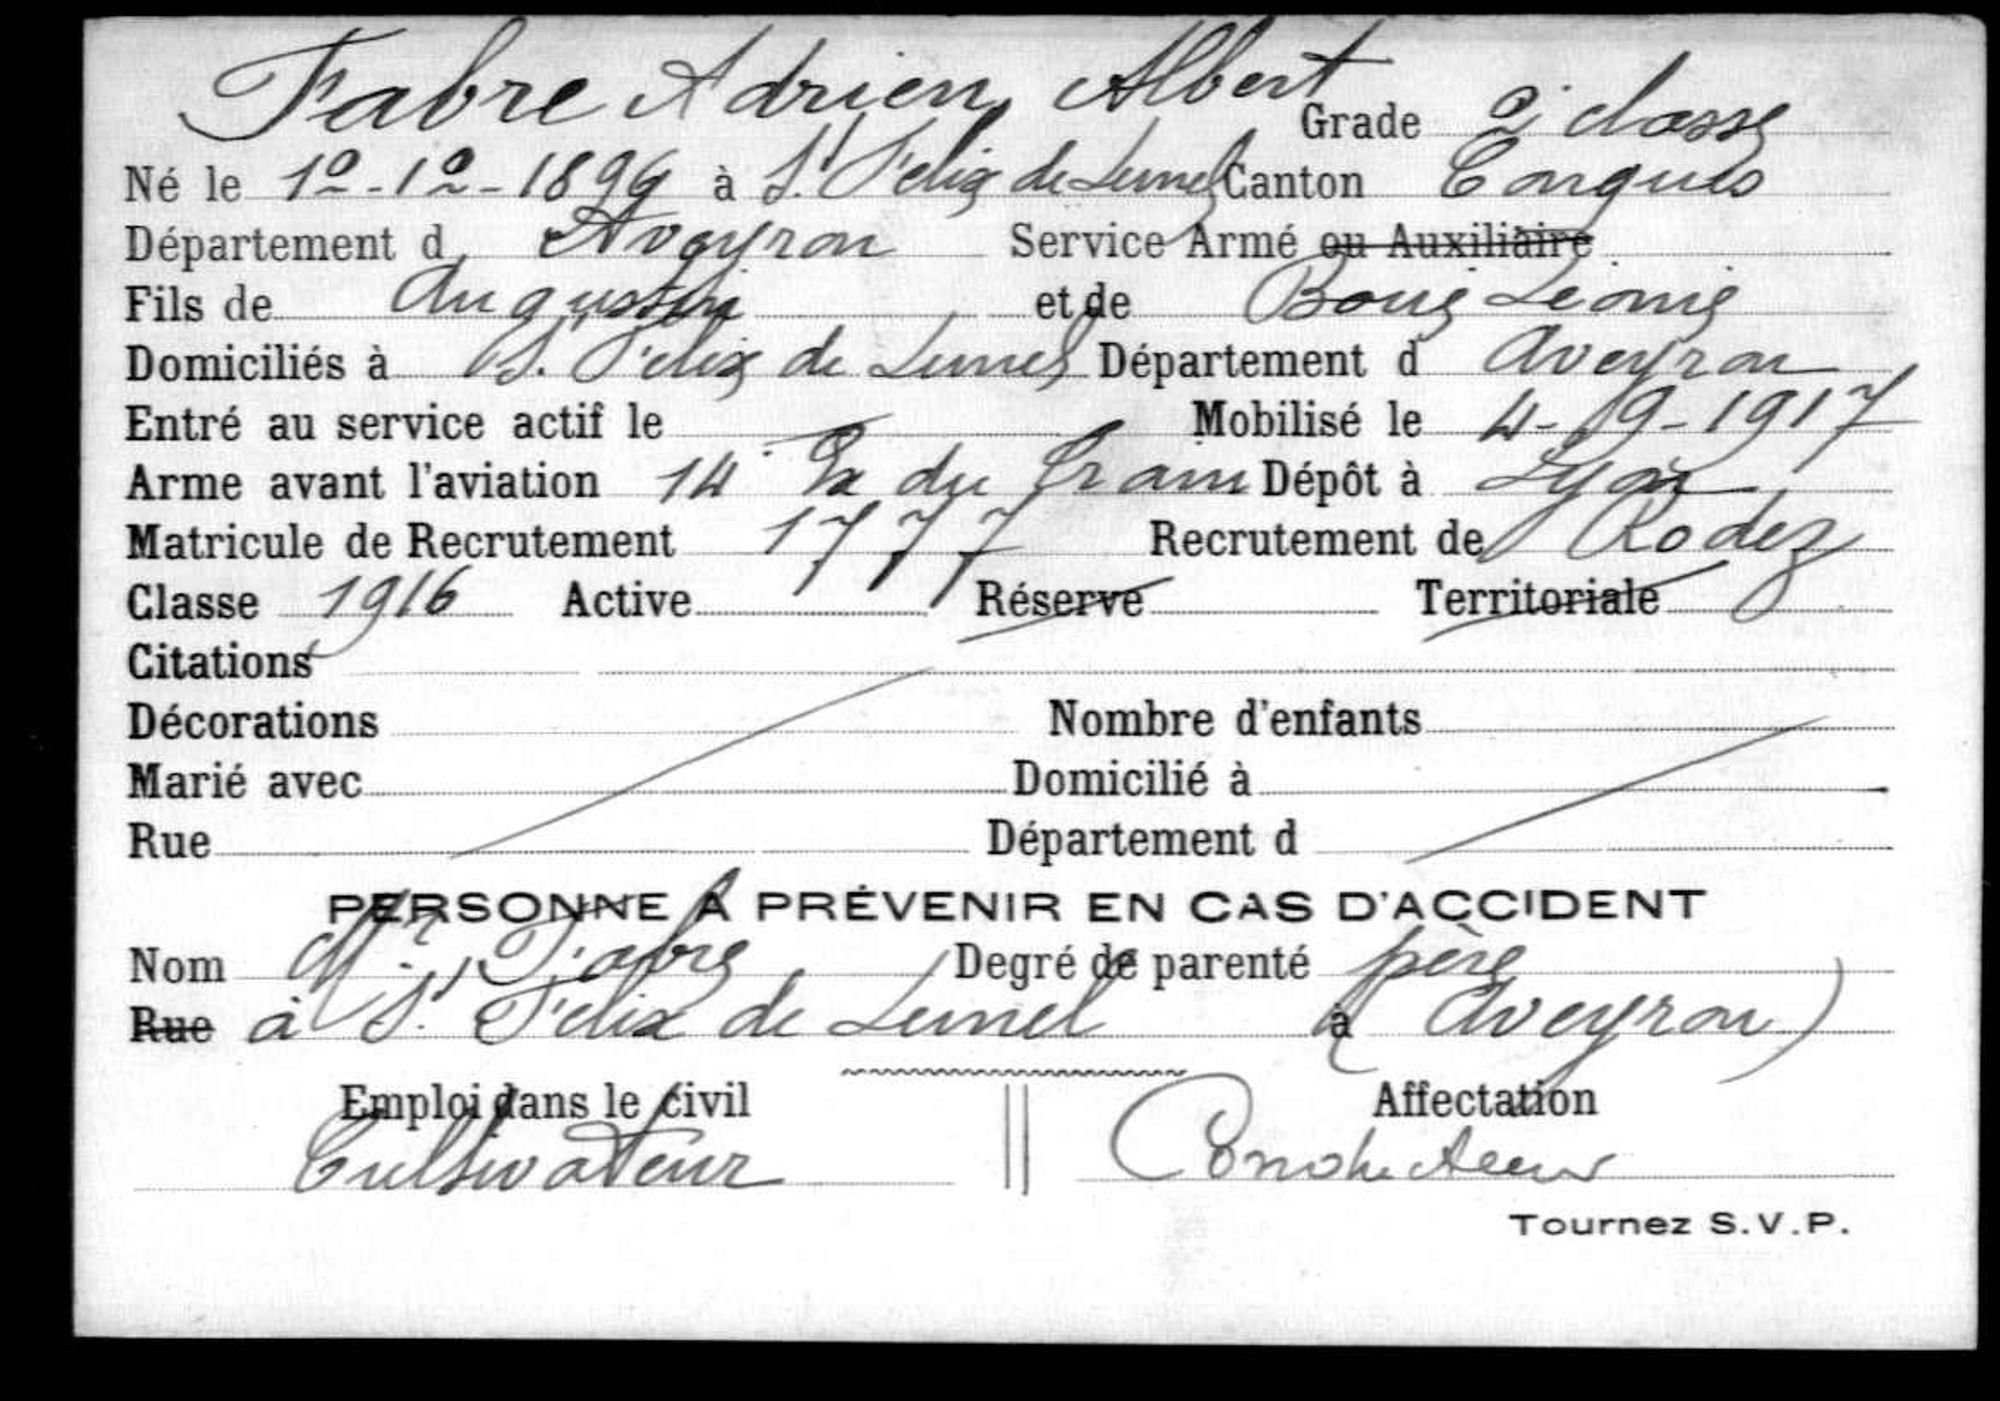 Fabre Adrien, Albert Grade 2e classe
Né le 12-12-1896 à St Félix de Lunel Canton Conques
Département d Aveyron Service Armé ou Auxiliaire
Fils de Augustin et de Leonie
Domiciliés à St. Félix de Lunel Département d Aveyron
Entré au service actif le Mobilisé le 4-9-1917
Arme avant l'aviation 14 du train Dépôt à Lyon
Matricule de Recrutement 1777 Recrutement de Rodez
Classe 1916 Active Réserve Territoriale
Citations
Décorations Nombre d'enfants
Marié avec Domicilié à
Rue Département d
PERSONNE A PRÉVENIR EN CAS D'ACCIDENT
Nom Mr Fabre Degré de parenté père
Rue à St. Félix de Lunel à (Aveyron)
Emploi dans le civil Affectation
Cultivateur Conducteur
Tournez S.V.P.